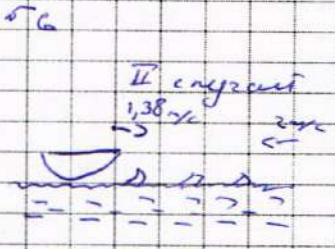 №6
II случай
1,38 м/с
2 м/с